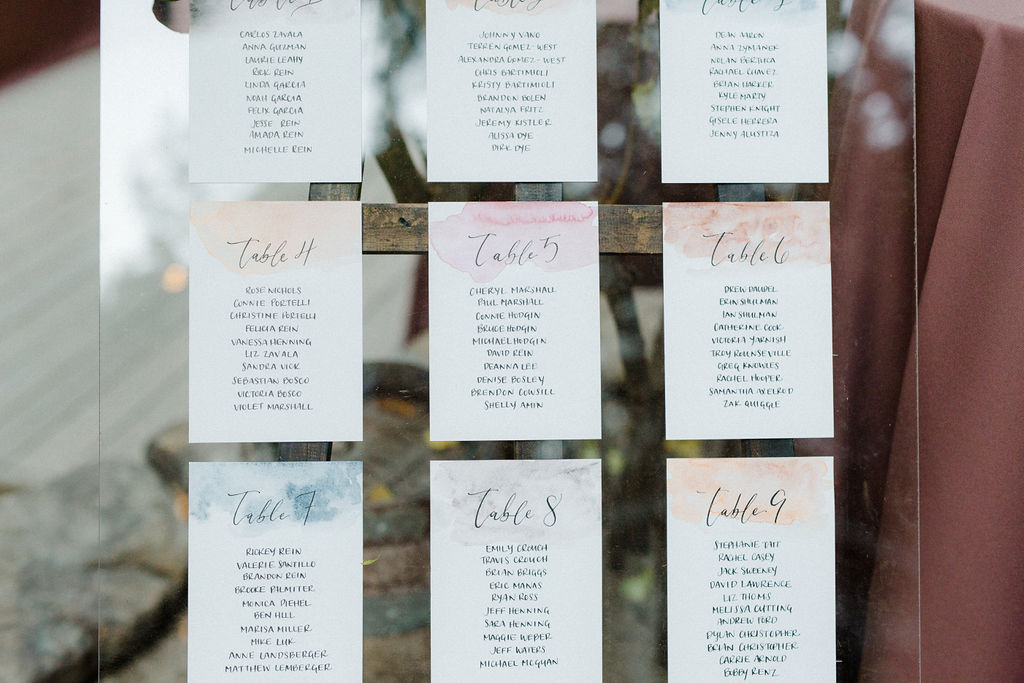 Table 1
CARLOS ZAVALA
ANNA GUZMAN
LAURIE LEAHY
RICK REIN
LINDA GARCIA
NOAH GARCIA
FELIX GARCIA
JESSE REIN
AMADA REIN
MICHELLE REIN
Table 2
JOHNNY VANO
TERREN GOMEZ-WEST
ALEXANDRA GOMEZ-WEST
CHRIS BARTIMIOLI
KRISTY BARTIMIOLI
BRANDON BOLEN
NATALYA FRITZ
JEREMY KISTLER
ALISSA DYE
DIRK DYE
Table 3
DEAN AARON
ANNA ZYMANEK
NOLAN BERTHCA
RACHAEL CHAVEZ
BRIAN HARKER
KYLE MARTY
STEPHEN KNIGHT
GISELE HERRERA
JENNY ALUSTIZA
Table 4
ROSE NICHOLS
CONNIE PORTELLI
CHRISTINE PORTELLI
FELICIA REIN
VANESSA HENNING
LIZ ZAVALA
SANDRA VICK
SEBASTIAN BOSCO
VICTORIA BOSCO
VIOLET MARSHALL
Table 5
CHERYL MARSHALL
PAUL MARSHALL
CONNIE HODGIN
BRUCE HODGIN
MICHAEL HODGIN
DAVID REIN
DEANNA LEE
DENISE BOSLEY
BRENDON COWSILL
SHELLY AMIN
Table 6
DREW DAUDEL
ERIN SHULMAN
IAN SHULMAN
CATHERINE COOK
VICTORIA YARNISH
TROY ROUNSEVILLE
GREG KNOWLES
RACHEL HOOPER
SAMANTHA AXELROD
ZAK QUIGGLE
Table 7
RICKEY REIN
VALERIE SANTILLO
BRANDON REIN
BROOKE PALMITER
MONICA DIEHEL
BEN HILL
MARISA MILLER
MIKE LUK
ANNE LANDSBERGER
MATTHEW LEMBERGER
Table 8
EMILY CROUCH
TRAVIS CROUCH
BRIAN BRIGGS
ERIC MANAS
RYAN ROSS
JEFF HENNING
SARA HENNING
MAGGIE WEBER
JEFF WATERS
MICHAEL MCGHAN
Table 9
STEPHANIE TAIT
RACHEL CASEY
JACK SWEENEY
DAVID LAWRENCE
LIZ THOMS
MELISSA CUTTING
ANDREW FORD
DYLAN CHRISTOPHER
BRIAN CHRISTOPHER
CARRIE ARNOLD
BOBBY RENZ